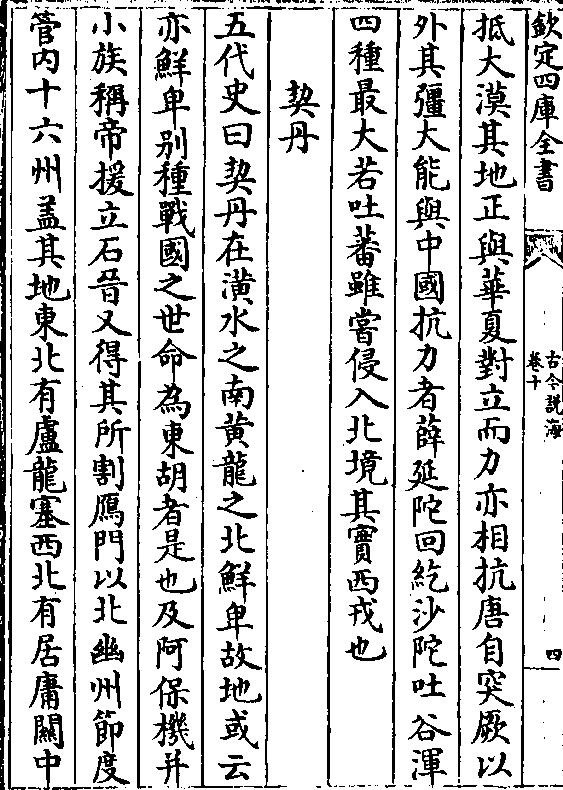 欽定四庫全書
古今說海
卷十
四
抵大漠其地正與華夏對立而力亦相抗唐自突厥以
外其彊大能與中國抗力者薛延陀回紇沙陀吐谷渾
四種最大若吐蕃雖嘗侵入北境其實西戎也
契丹
五代史曰契丹在潢水之南黄龍之北鮮卑故地或云
亦鮮卑别種戰國之世命為東胡者是也及阿保機并
小族稱帝援立石晉又得其所割鴈門以北幽州節度
管内十六州盖其地東北有盧龍塞西北有居庸關中